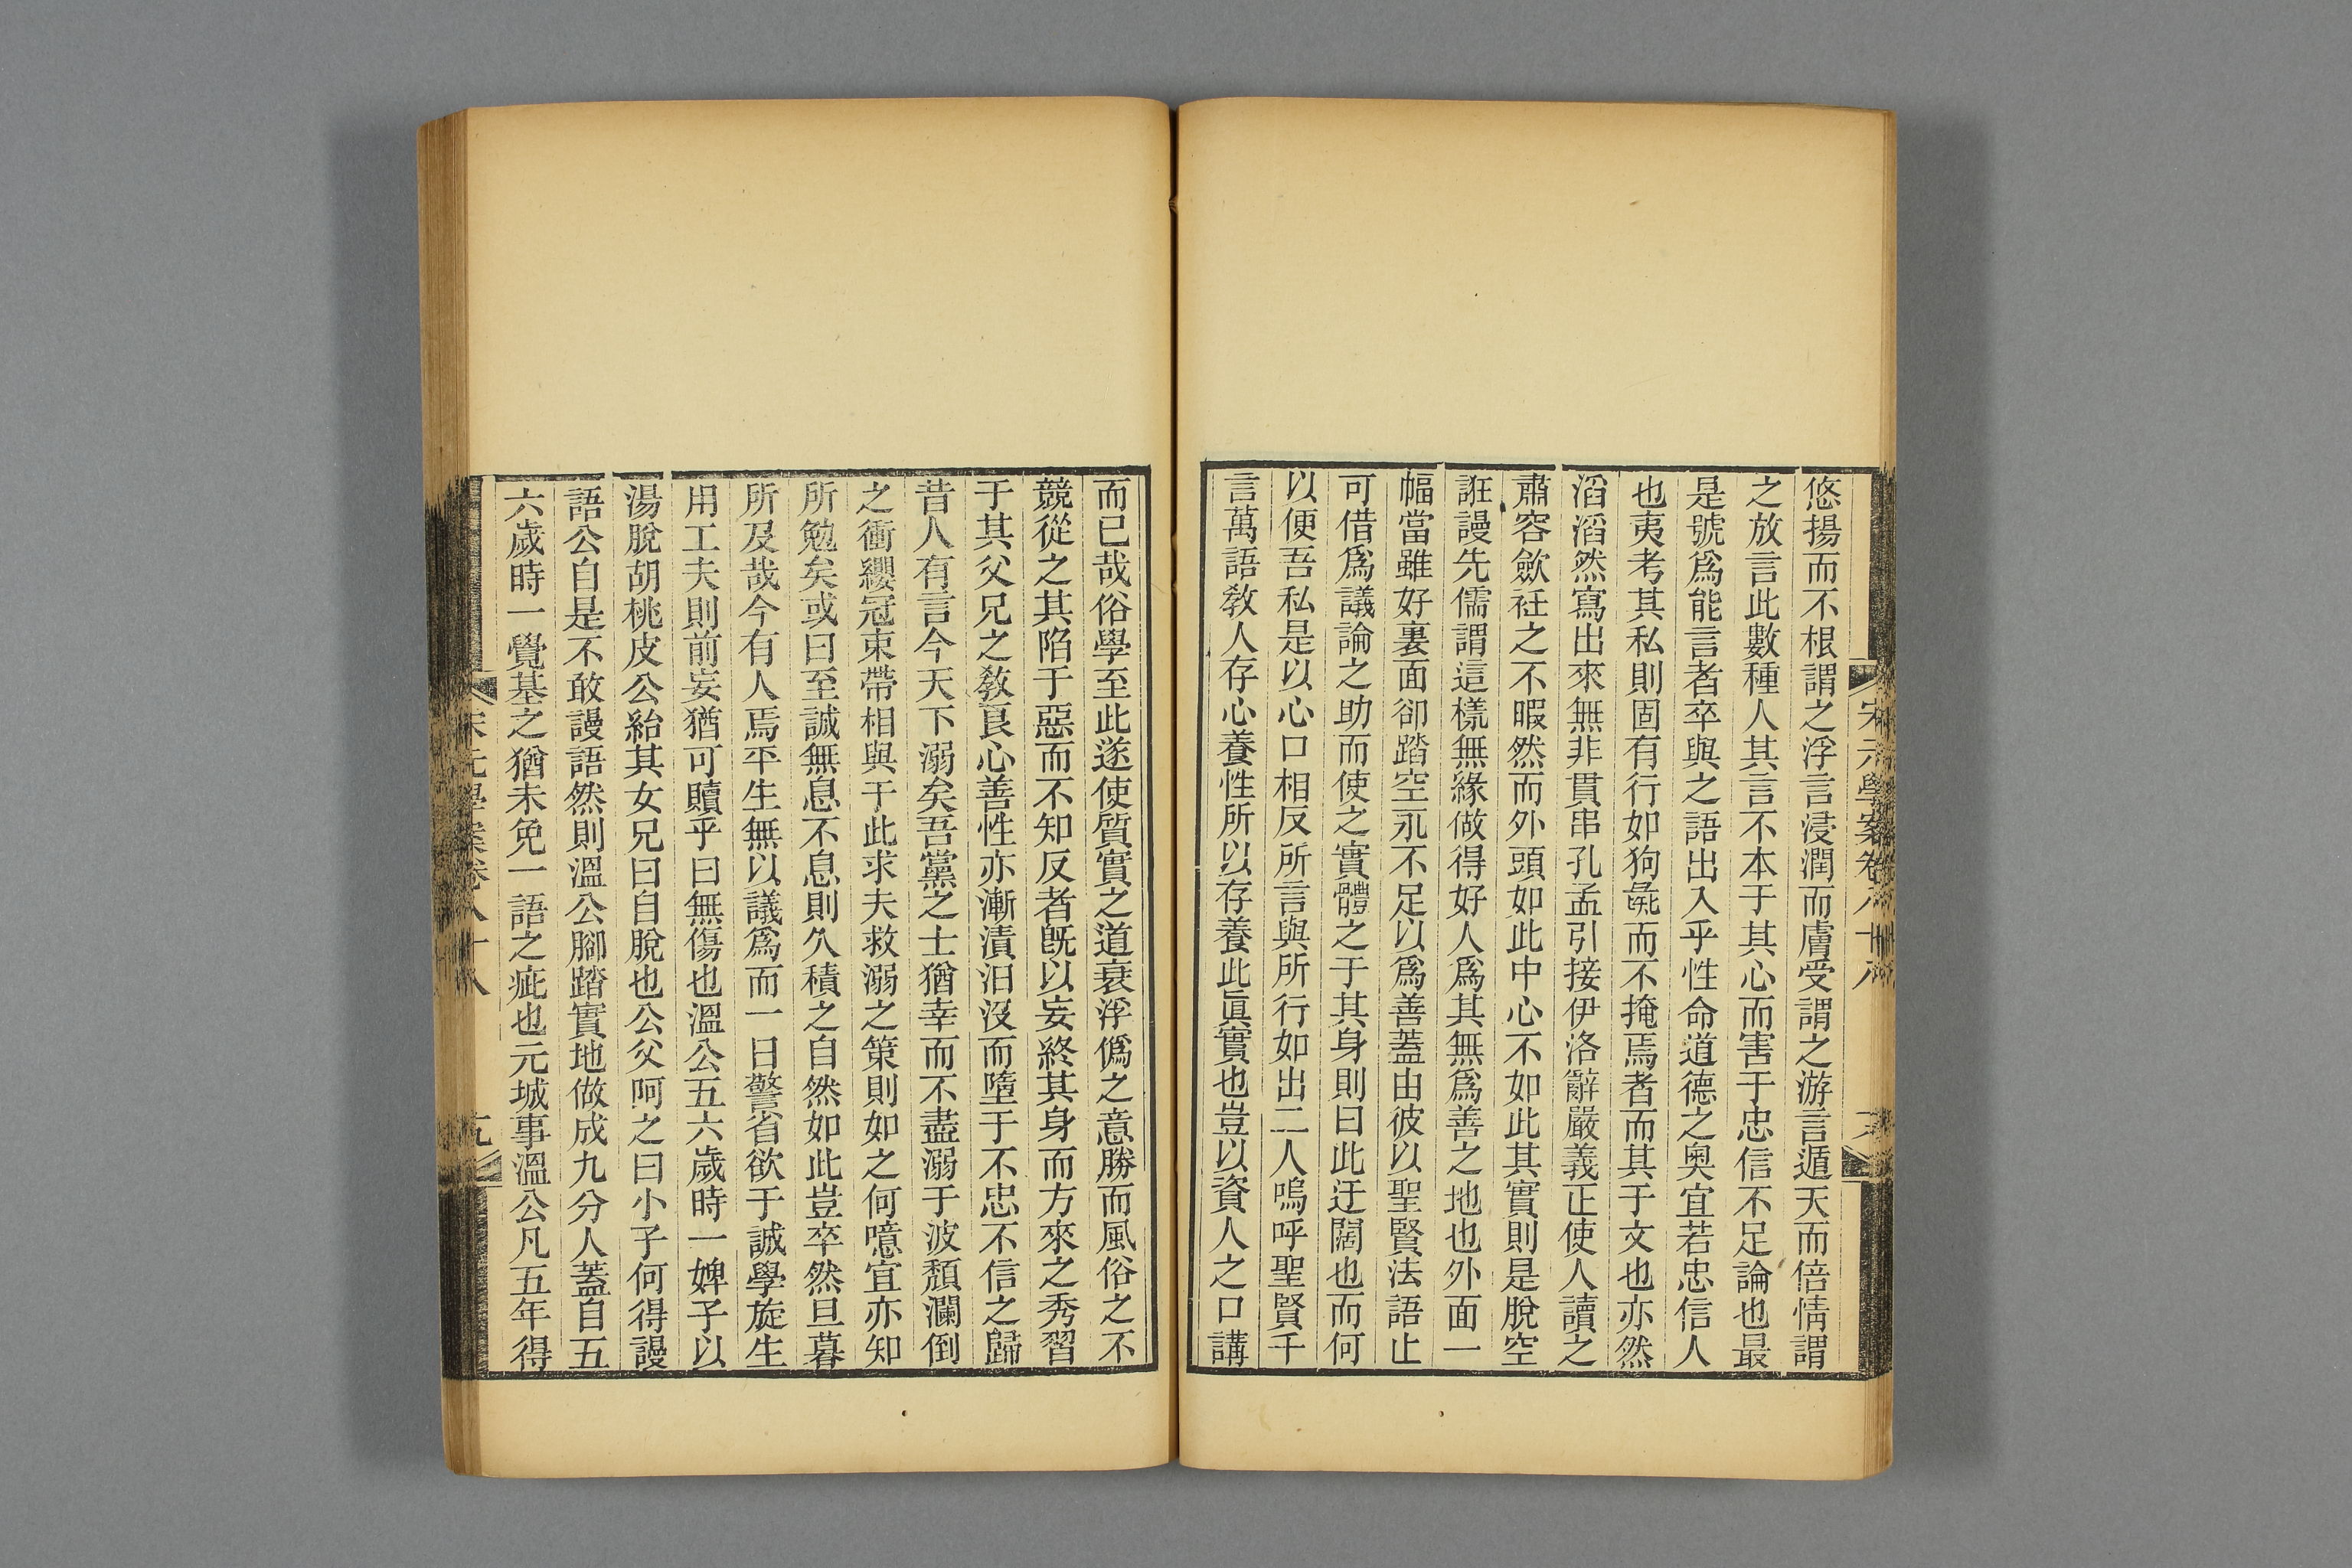 宋元學案卷八十八
悠揚而不根謂之浮言浸潤而膚受謂之游言遁天而倍情謂
之放言此數種人其言不本于其心而害于忠信不足論也最
是號爲能言者卒與之語出入乎性命道德之奧宜若忠信人
也夷考其私則固有行如狗彘而不掩焉者而其于文也亦然
滔滔然寫出來無非貫串孔孟引接伊洛辭嚴義正使人讀之
肅容歛衽之不暇然而外頭如此中心不如此其實則是脫空
誑謾先儒謂這樣無緣做得好人爲其無爲善之地也外面一
幅當雖好裏面卻踏空永不足以爲善蓋由彼以聖賢法語止
可借爲議論之助而使之實體之于其身則曰此迂闊也而何
以便吾私是以心口相反所言與所行如出二人嗚呼聖賢千
言萬語敎人存心養性所以存養此眞實也豈以資人之口講
而已哉俗學至此遂使質實之道衰浮僞之意勝而風俗之不
競從之其陷于惡而不知反者旣以妄終其身而方來之秀習
于其父兄之敎良心善性亦漸漬汨沒而墮于不忠不信之歸
昔人有言今天下溺矣吾黨之士猶幸而不盡溺于波頹瀾倒
之衝纓冠束帶相與于此求夫救溺之策則如之何噫宜亦知
所勉矣或曰至誠無息不息則久積之自然如此豈卒然旦暮
所及哉今有人焉平生無以議爲而一日警省欲于誠學旋生
用工夫則前妄猶可贖乎曰無傷也溫公五六歲時一婢子以
湯脫胡桃皮公紿其女兄曰自脫也公父呵之曰小子何得謾
語公自是不敢謾語然則溫公腳踏實地做成九分人蓋自五
六歲時一覺基之猶未免一語之疵也元城事溫公凡五年得
宋元學案卷八十八